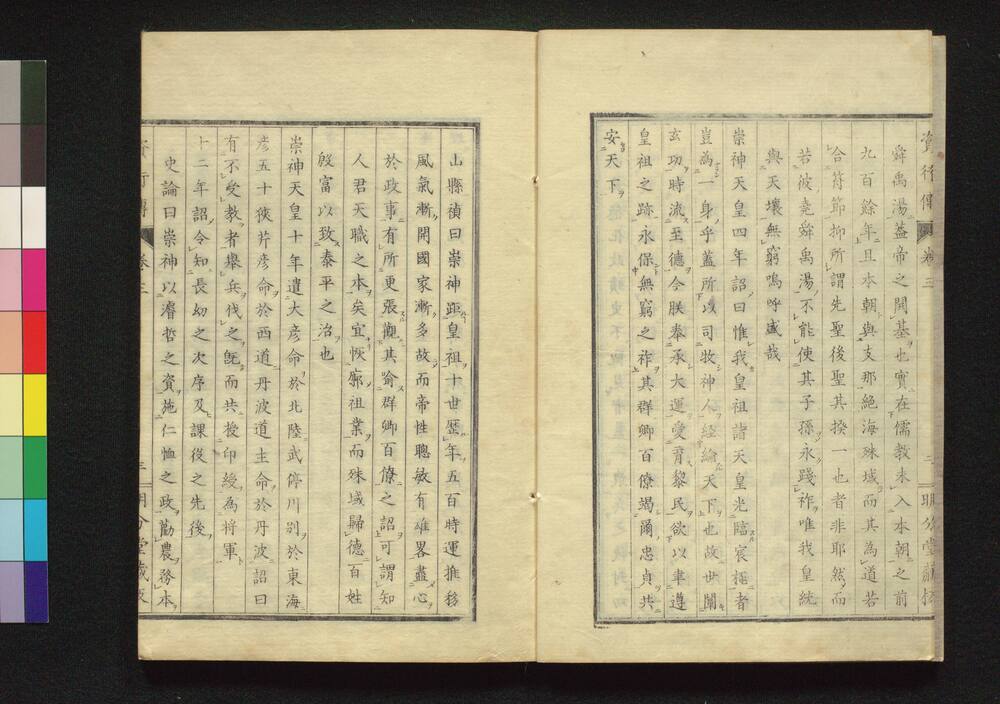 資行傳 卷三 二 明分堂藏板
舜禹湯蓋帝之開基也實在儒教未入本朝之前
九百餘年且本朝與支那絕海殊域而其為道若
合符節抑所謂先聖後聖其揆一也者非耶然而
若彼堯舜禹湯不能使其子孫永踐祚唯我皇統
與天壤無窮嗚呼盛哉
崇神天皇四年詔曰惟我皇祖諸天皇光臨宸極者
豈為一身乎蓋所以司牧神人經綸天下也故世闡
玄功時流至德今朕奉承大運愛育黎民欲以聿遵
皇祖之跡永保無窮之祚其群卿百僚竭爾忠貞共
安天下
山縣禎曰崇神距皇祖十世歷年五百時運推移
風氣漸開國家漸多故而帝性聰敏有雄畧盡心
於政事有所更張觀其喻群卿百僚之詔可謂知
人君天職之本矣宜恢廓祖業而殊域歸德百姓
殷富以致泰平之治也
崇神天皇十年遣大彥命於北陸武停川別於東海
彥五十狹芹彥命於西道丹波道主命於丹波詔曰
有不受教者舉兵伐之既而共授印綬為將軍
十二年詔令知長幼之次序及課役之先後
史論曰崇神以濬哲之資施仁恤之政勸農務本
資行傳 卷三 三 明分堂藏板